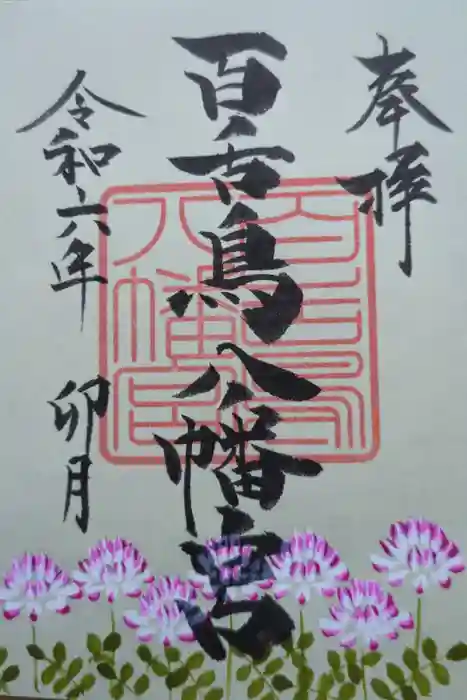 奉拝
百舌鳥八幡宮
令和六年 卯月
百舌鳥
八幡宮